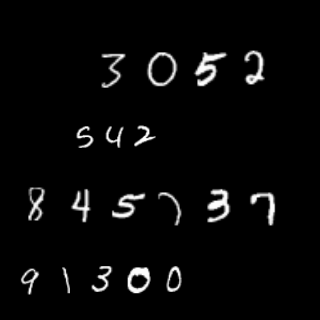 3052
542
845737
91300